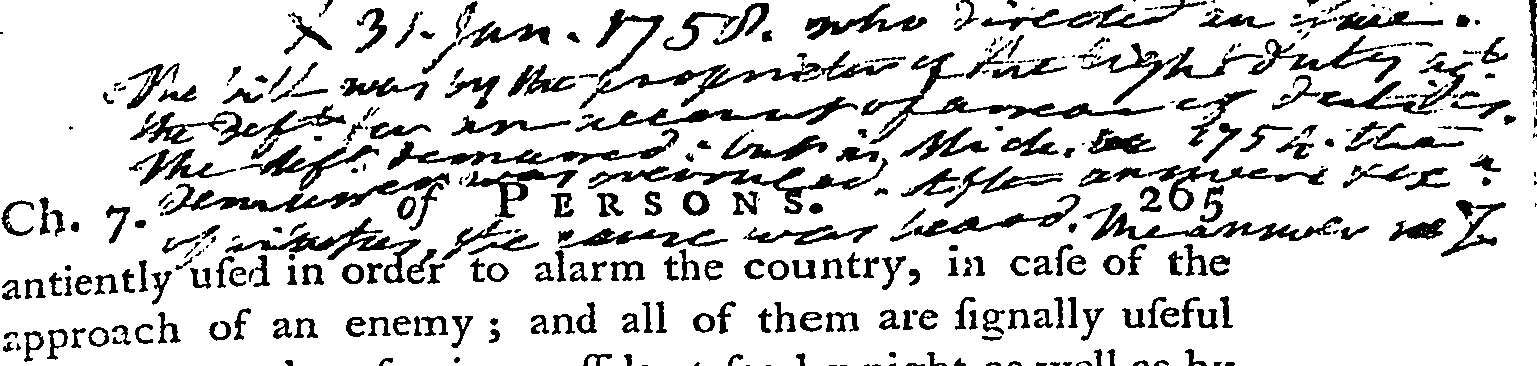 X 31. Jan. 1758. who directed an issue.
The bill was by the proprietor of the light duty agt
the deft for an account of arrears of duties.
The deft demurred: but in Mich. 1754. the
demurrer was overruled. After answers & exn
Ch. 7. of PERSONS. 265
of witnesses, the cause was heard. The answer
antiently uſed in order to alarm the country, in caſe of the
approach of an enemy; and all of them are ſignally uſeful
night as well as by